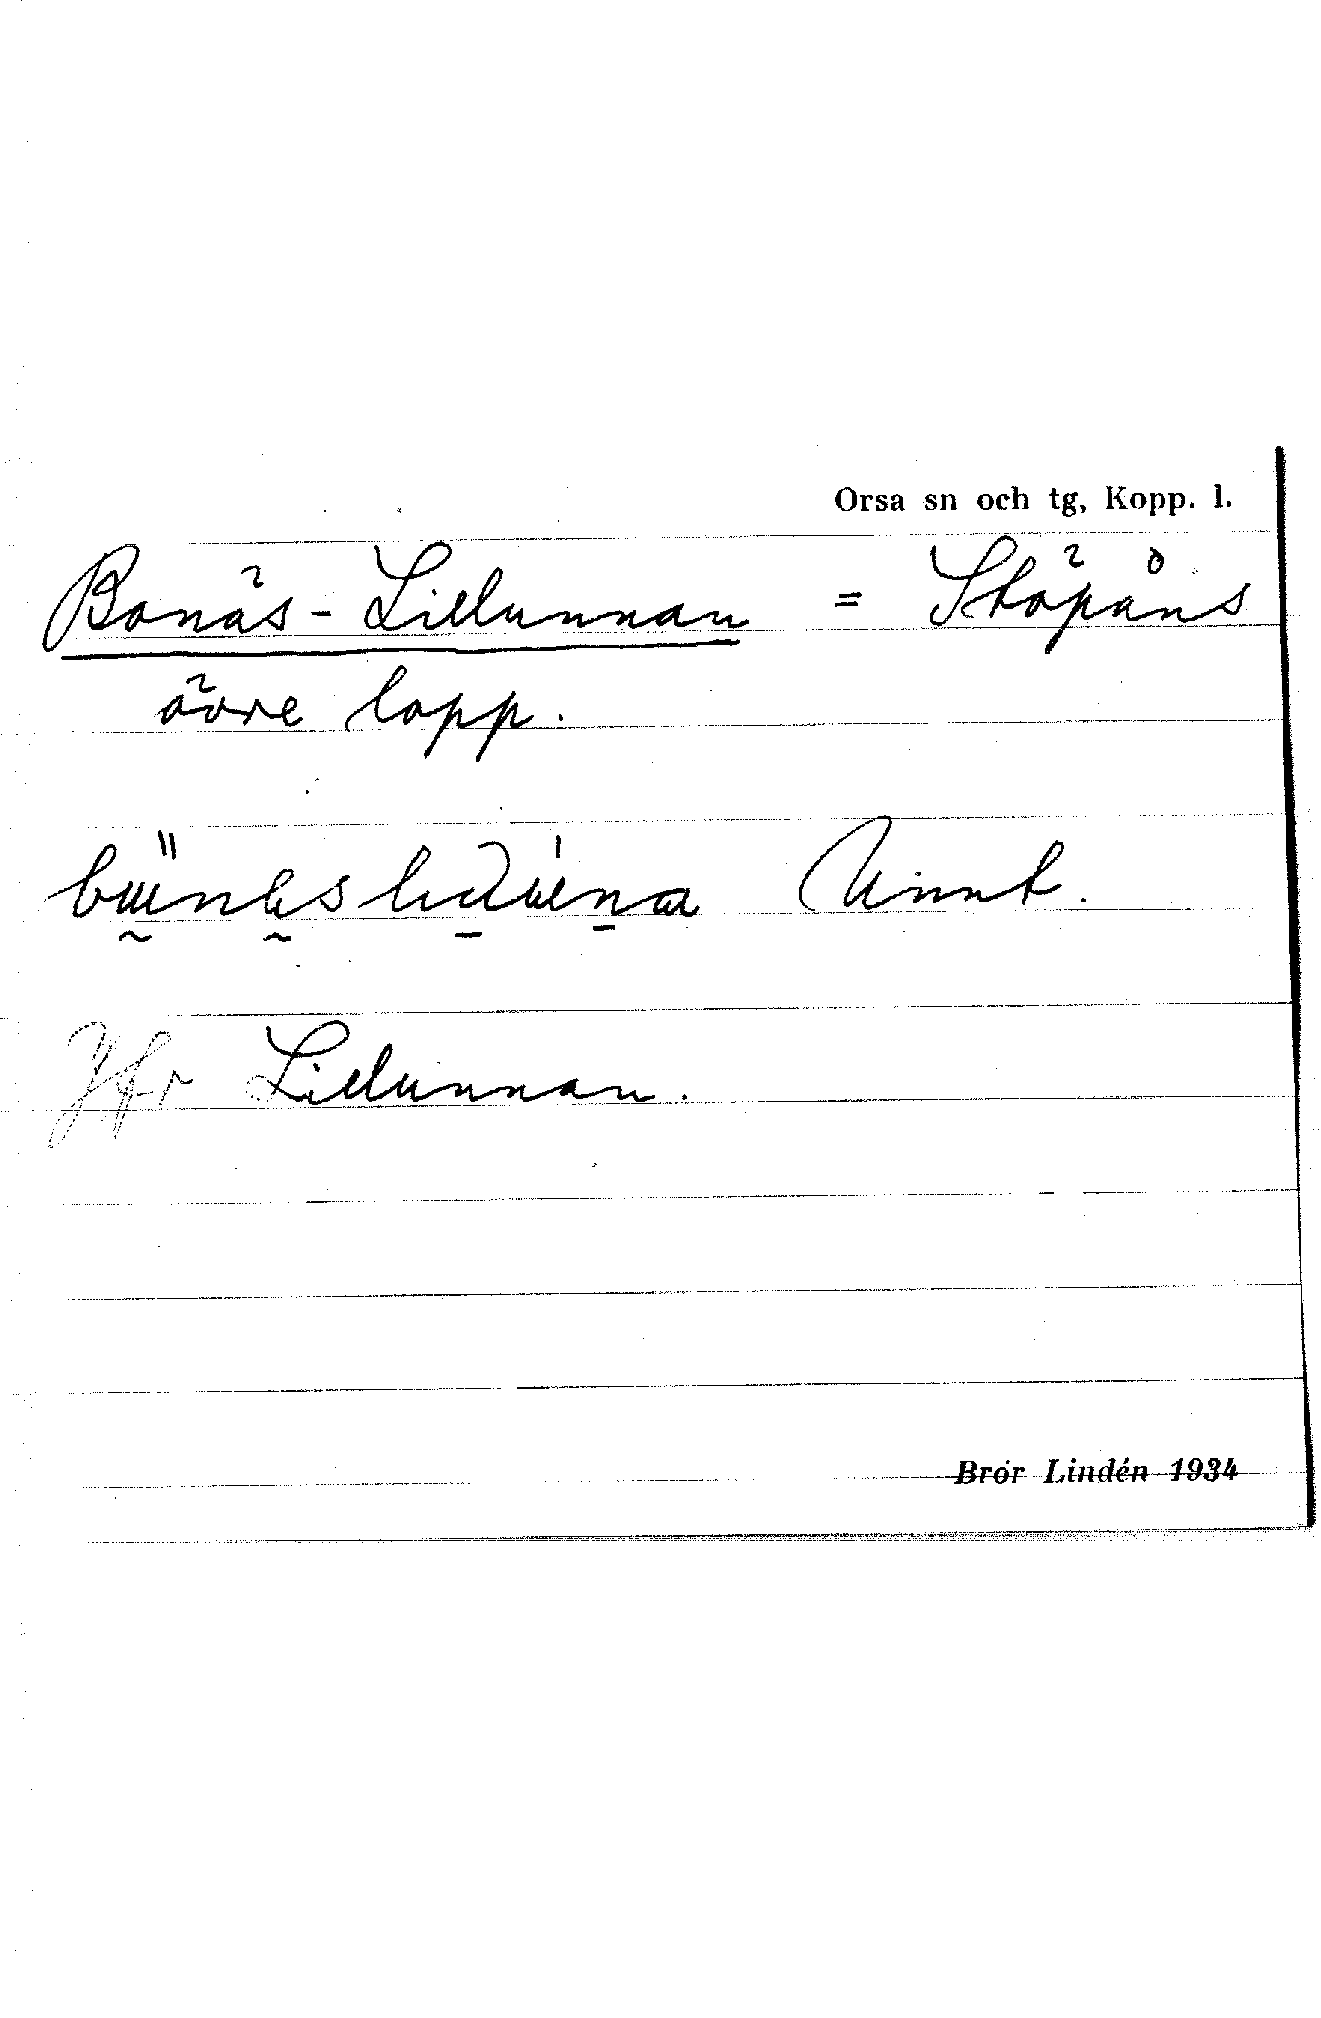 Orsa sn och tg, Kopp. l.
Bonäs-Lillunnan = Stöpåns
övre lopp.
Unnt.
Jfr Lillunnan.
Bror Lindén 1934